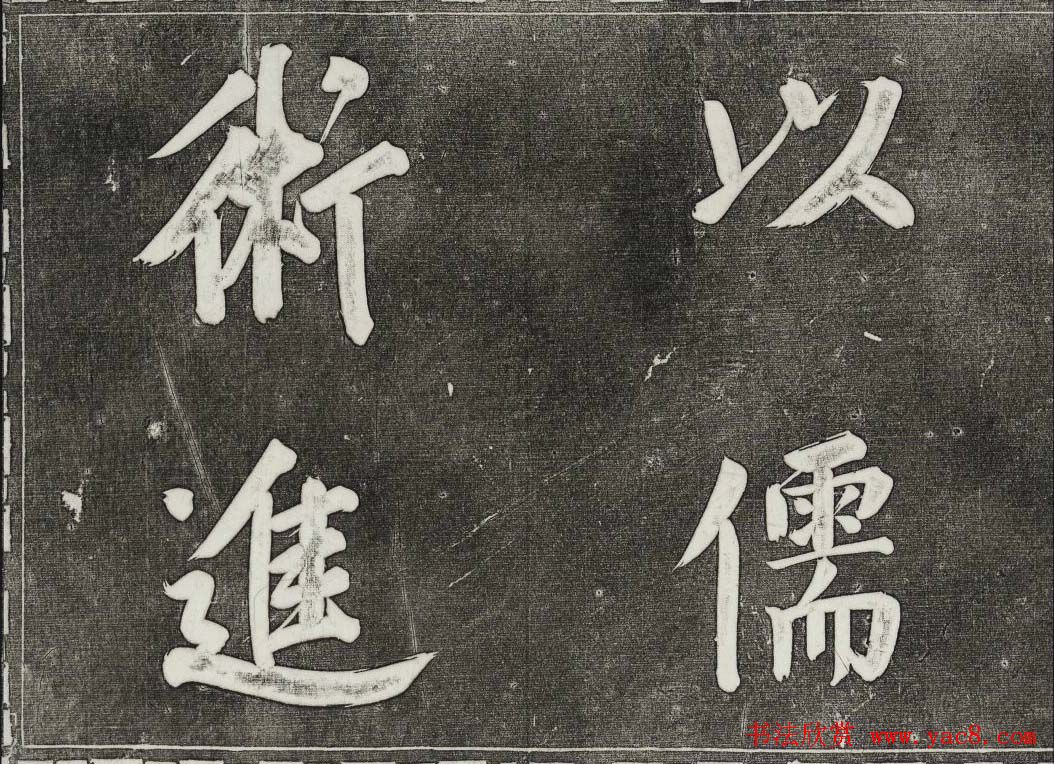 以儒
術進
书法欣赏 www.yac8.com